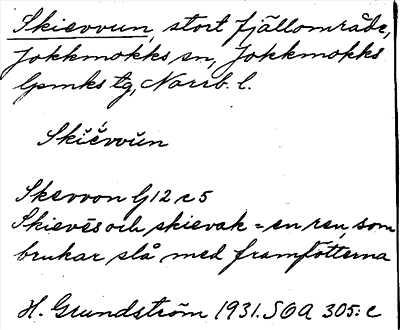 Skievvun, stort fjällområde,
Jokkmokks sn, Jokkmokks
lpmks tg, Norrb. l.
Skiĕ́vvŭn
Skevvon G12 c 5
Skievēs och skievak = en ren, som
brukar slå med framfötterna
H. Grundström 1931. SOA 305: c